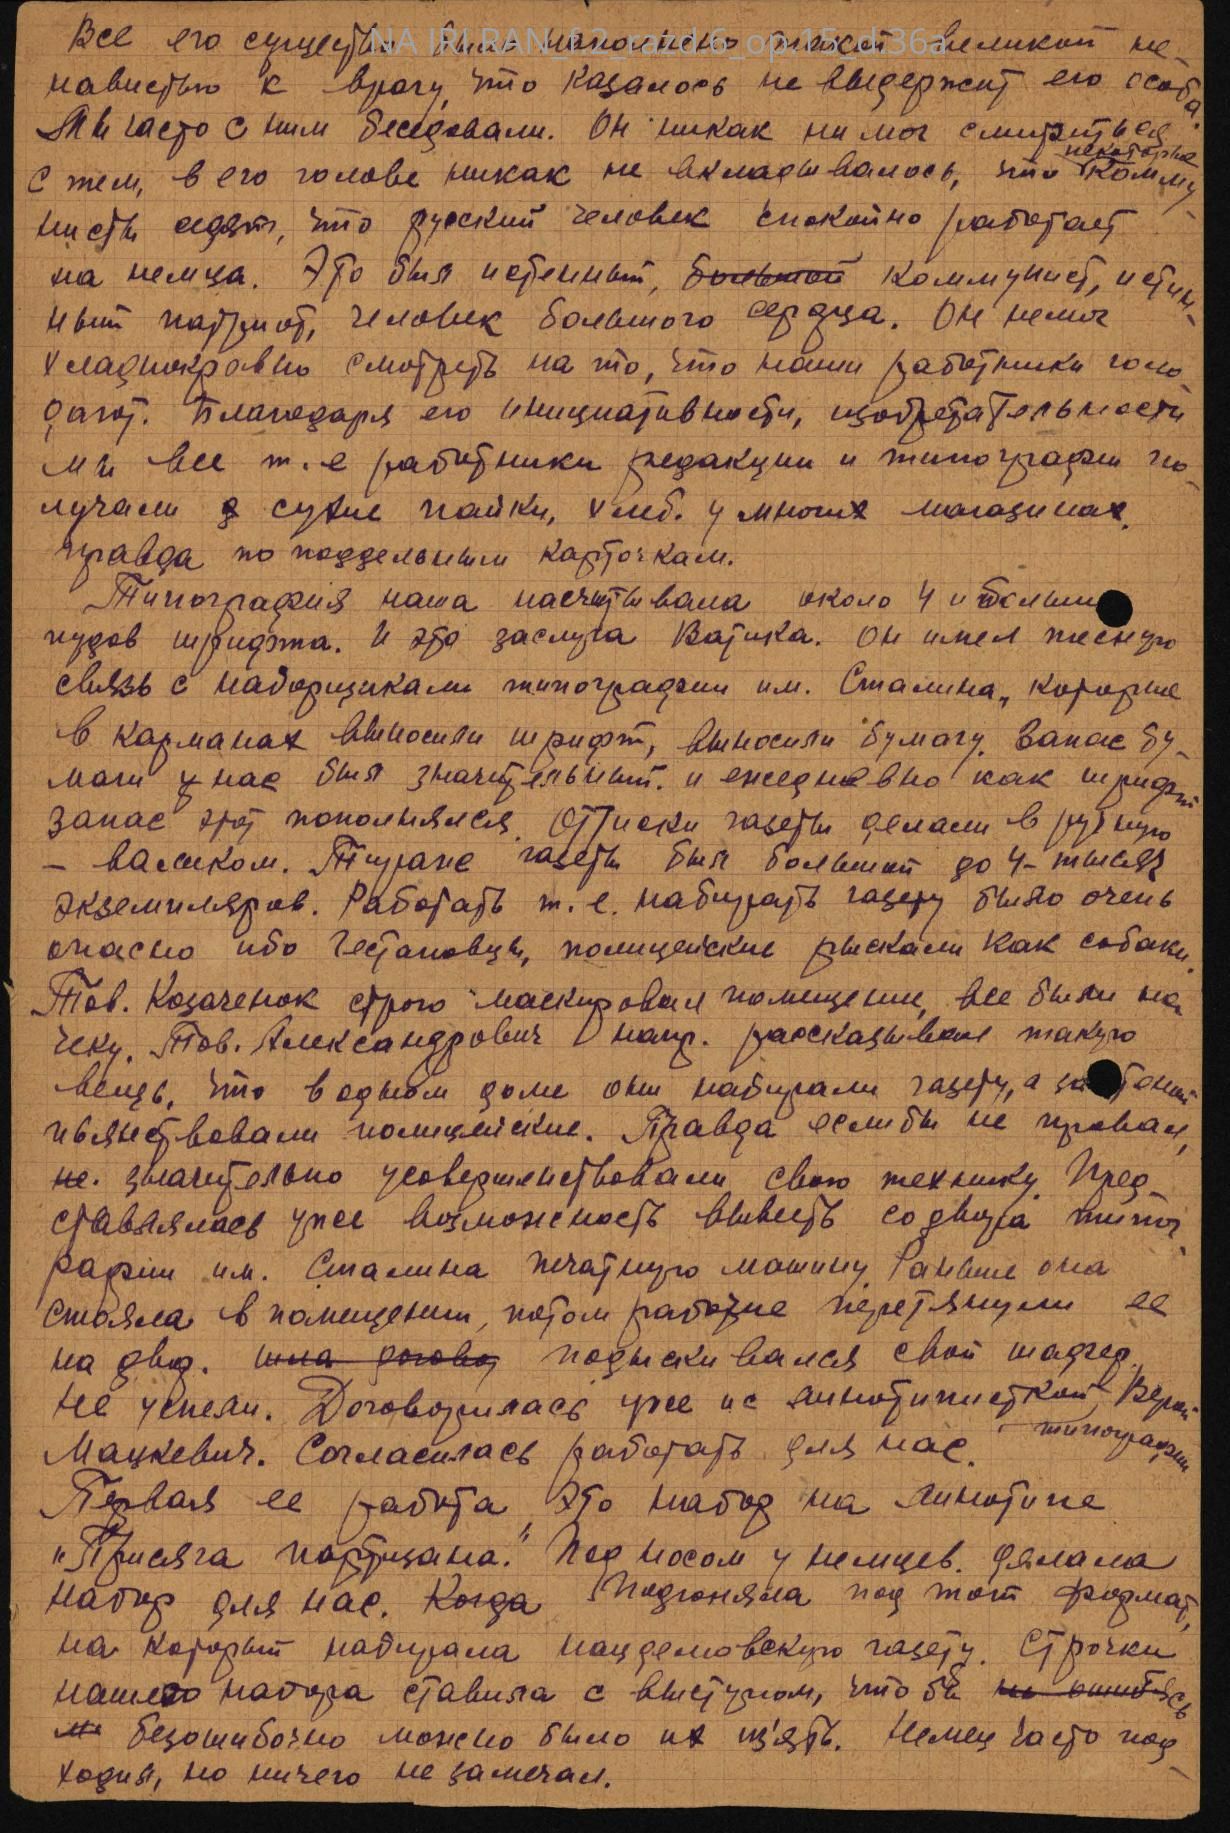 NA IRI RAN_f.2_razd.6_op.15_d.36a
Все его существо было наполнено такой великой не-
навистью к врагу, что казалось не выдержит его особа.
Мы часто с ним беседовали. Он никак ни мог смириться
с тем, в его голове никак не вкладывалось, что некоторые комму-
нисты сидят, что русский человек спокойно работает
на немца. Это был истенный, большой коммунист, истин-
ный патриот, человек большого сердца. Он немог
хладнокровно смотреть на то, что наши работники голо-
дают. Благодаря его инициативности, изобретательности
мы все т.е работники редакции и типографии по-
лучали в сутки пайки, хлеб. у многих магазинах,
правда по поддельным карточкам.
Типография наша насчитывала около 4 и больше
пудов шрифта. И это заслуга Ватика. Он имел тесную
связь с наборщиками типографии им. Сталина, которые
в карманах выносили шрифт, выносили бумагу. Запас бу-
маги у нас был значительный. и ежедневно как шрифт
запас этот пополнялся. Оттиски газеты делали в ручную
– валиком. Тираж газеты был большой до 4-тысяч
экземпляров. Работать т.е. набирать газету было очень
опасно ибо Гестаповцы, полицейские рыскали как собаки.
Тов. Казаченок строго маскировал помещение, все были на
чеку. Тов. Александрович напр. рассказывал такую
вещь, что в одном доме они набирали газету, а за стеной
пьянствовали полицейские. Правда если бы не провал,
не. значительно усовершенствовали свою технику. Пред-
ставлялась уже возможность вывезть со двора типог-
рафии им. Сталина печатную машину. Раньше она
стояла в помещении, потом рабочие перетянули ее
на двор. шла договор подыскивался свой шофер.
Не успели. Договорилась уже и с линотиписткой Верой
Мацкевич. Согласилась работать для нас.
типографии
Первая ее работа это набор на линотипе
„Присяга партизана." Под носом у немцев. дялала
набор для нас. Когда Подгоняла под тот формат,
на который набирала нацдемовскую газету. Строчки
нашего набора ставила с выступом, что бы не ошибясь
безошибочно можно было их из'ять. Немец часто под-
ходил, но ничего не замечал.